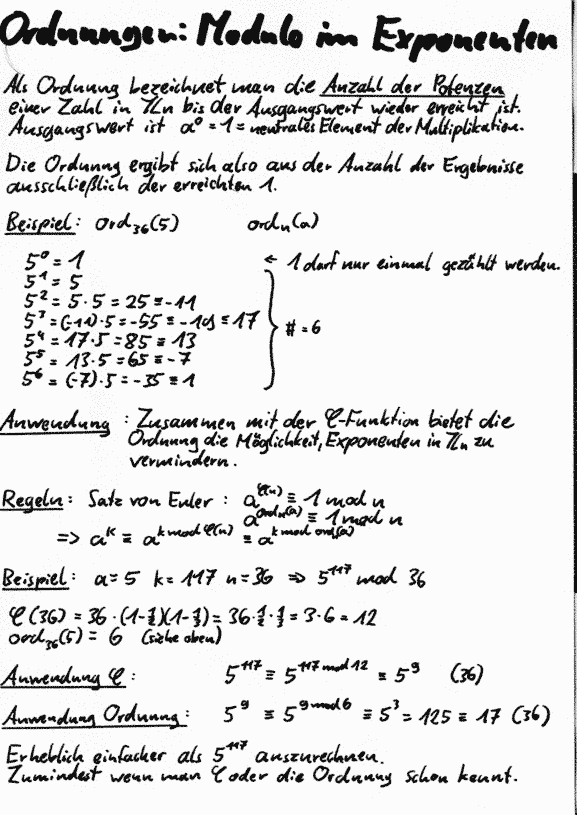 Ordnungen: Modulo im Exponenten
Als Ordnung bezeichnet man die Anzahl der Potenzen
einer Zahl in ℤn bis der Ausgangswert wieder erreicht ist.
Ausgangswert ist a⁰ = 1 = neutrales Element der Multiplikation.
Die Ordnung ergibt sich also aus der Anzahl der Ergebnisse
ausschließlich der erreichten 1.
Beispiel: ord₃₆(5) ordₙ(a)
5⁰ = 1 ← 1 darf nur einmal gezählt werden.
5¹ = 5
5² = 5·5 = 25 ≡ -11
5³ = (-11)·5 = -55 ≡ -19 ≡ 17 # = 6
5⁴ = 17·5 = 85 ≡ 13
5⁵ = 13·5 = 65 ≡ -7
5⁶ = (-7)·5 = -35 ≡ 1
Anwendung: Zusammen mit der φ-Funktion bietet die
Ordnung die Möglichkeit, Exponenten in ℤn zu
vermindern.
Regeln: Satz von Euler: a^φ(n) ≡ 1 mod n
a^ordₙ(a) ≡ 1 mod n
=> a^k ≡ a^(k mod φ(n)) ≡ a^(k mod ordₙ(a))
Beispiel: a = 5 k = 117 n = 36 => 5¹¹⁷ mod 36
φ(36) = 36·(1-½)(1-⅓) = 36·½·⅓ = 3·6 = 12
ord₃₆(5) = 6 (siehe oben)
Anwendung φ: 5¹¹⁷ ≡ 5^(117 mod 12) ≡ 5⁹ (36)
Anwendung Ordnung: 5⁹ ≡ 5^(9 mod 6) ≡ 5³ = 125 ≡ 17 (36)
Erheblich einfacher als 5¹¹⁷ auszurechnen.
Zumindest wenn man φ oder die Ordnung schon kennt.